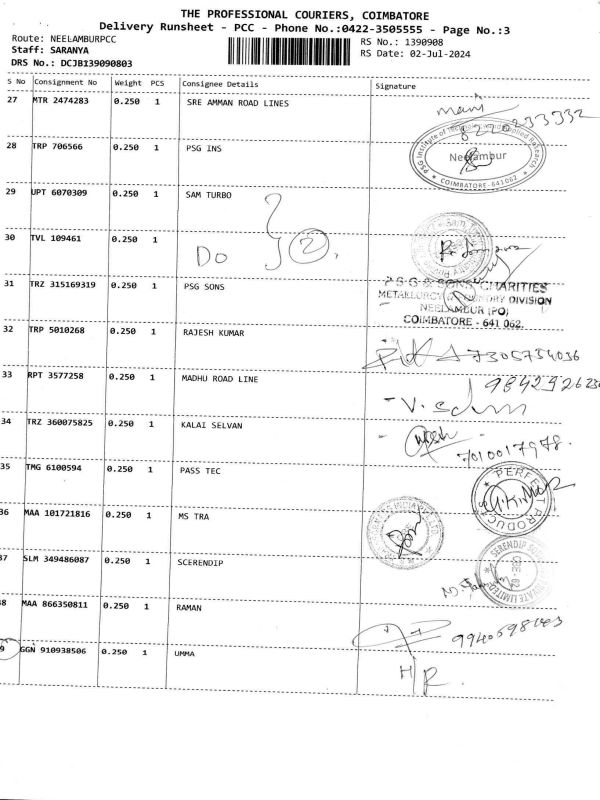 THE PROFESSIONAL COURIERS, COIMBATORE
Delivery Runsheet - PCC - Phone No.:0422-3505555 - Page No.:3
Route: NEELAMBURPCC RS No.: 1390908
Staff: SARANYA RS Date: 02-Jul-2024
DRS No.: DCJB139090803
S No Consignment No Weight PCS Consignee Details Signature
27 MTR 2474283 0.250 1 SRE AMMAN ROAD LINES
28 TRP 706566 0.250 1 PSG INS
Neelambur
COIMBATORE-641062
29 UPT 6070309 0.250 1 SAM TURBO
30 TVL 109461 0.250 1 Do 2
31 TRZ 315169319 0.250 1 PSG SONS
P S G & SONS' CHARITIES
METALLURGY & FOUNDRY DIVISION
NEELAMBUR (PO)
COIMBATORE - 641 062.
32 TRP 5010268 0.250 1 RAJESH KUMAR
7305754036
33 RPT 3577258 0.250 1 MADHU ROAD LINE
34 TRZ 360075825 0.250 1 KALAI SELVAN
7010017978.
35 TMG 6100594 0.250 1 PASS TEC
PERFECT PRODUCTS
36 MAA 101721816 0.250 1 MS TRA
37 SLM 349486087 0.250 1 SCERENDIP
38 MAA 866350811 0.250 1 RAMAN
39 GGN 910938506 0.250 1 UMMA